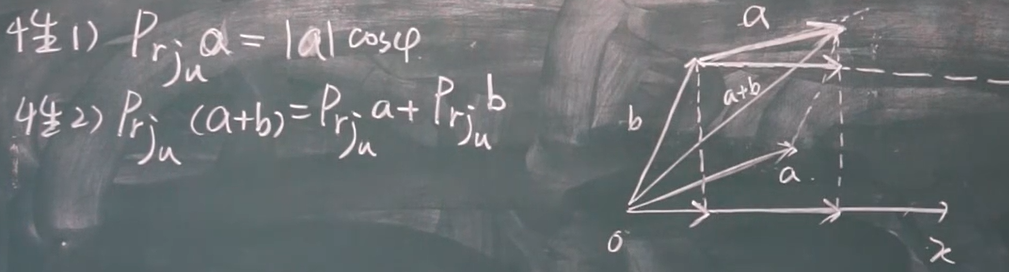 性1) Prj_u a = |a| cosφ.
性2) Prj_u (a+b) = Prj_u a + Prj_u b
a
a+b
b
a.
o
x